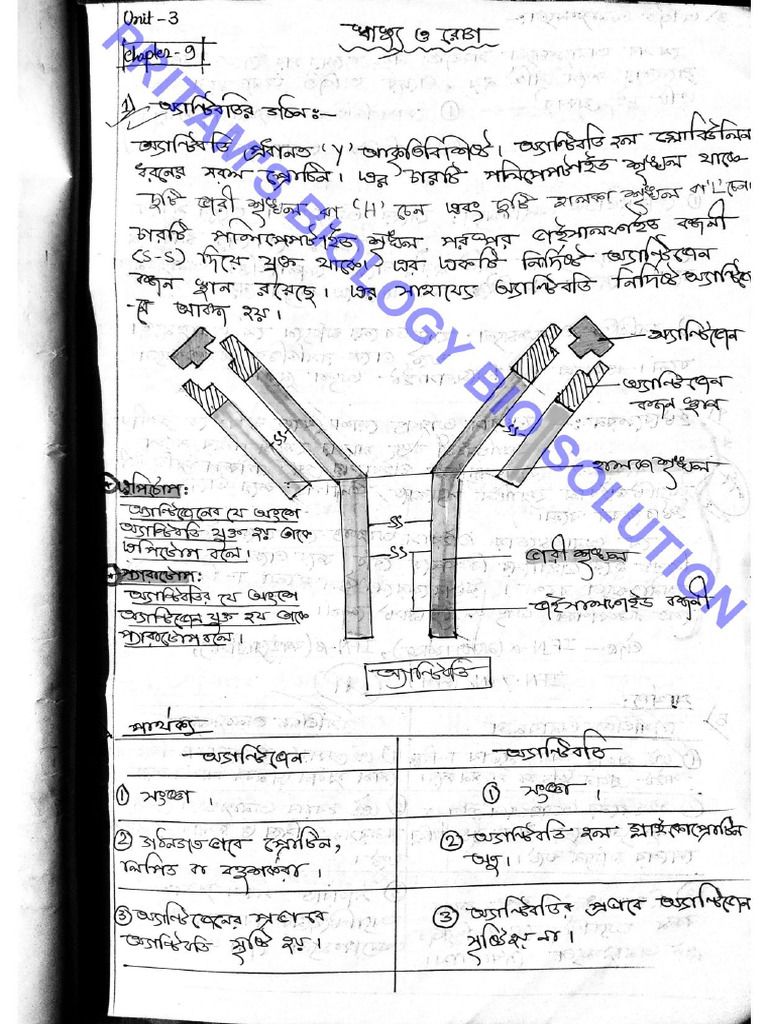 Unit - 3
স্বাস্থ্য ও রোগ
Chapter - 9
RRITAM'S BIOLOGY BIO SOLUTION
1) অ্যান্টিবডির গঠন :—
অ্যান্টিবডি প্রধানত 'Y' আকৃতিবিশিষ্ট। অ্যান্টিবডি হল গ্লোবিউলিন
ধরনের সরল প্রোটিন। এর চারটি পলিপেপটাইড শৃঙ্খল থাকে
দুটি ভারী শৃঙ্খল বা 'H' চেন এবং দুটি হালকা শৃঙ্খল বা 'L' চেন।
চারটি পলিপেপটাইড শৃঙ্খল পরস্পর ডাইসালফাইড বন্ধনী
(S-S) দিয়ে যুক্ত থাকে। এর একটি নির্দিষ্ট অ্যান্টিজেন
বন্ধন স্থান রয়েছে। এর সাহায্যে অ্যান্টিবডি নির্দিষ্ট অ্যান্টিজে
-নে আবদ্ধ হয়।
অ্যান্টিজেন
অ্যান্টিজেন
বন্ধন স্থান
SS
SS
হালকা শৃঙ্খল
এপিটোপ:
অ্যান্টিজেনের যে অংশে
অ্যান্টিবডি যুক্ত হয় তাকে
এপিটোপ বলে।
SS
SS
ভারী শৃঙ্খল
প্যারাটোপ:
অ্যান্টিবডির যে অংশে
অ্যান্টিজেন যুক্ত হয় তাকে
প্যারাটোপ বলে।
ডাইসালফাইড বন্ধনী
অ্যান্টিবডি
পার্থক্য
অ্যান্টিজেন
অ্যান্টিবডি
① সংজ্ঞা ।
① সংজ্ঞা ।
② গঠনগতভাবে প্রোটিন,
লিপিড বা বহুশর্করা ।
② অ্যান্টিবডি হল গ্লাইকোপ্রোটিন
অণু।
③ অ্যান্টিজেনের প্রভাবে
অ্যান্টিবডি সৃষ্টি হয় ।
③ অ্যান্টিবডির প্রভাবে অ্যান্টিজেন
সৃষ্টি হয় না ।